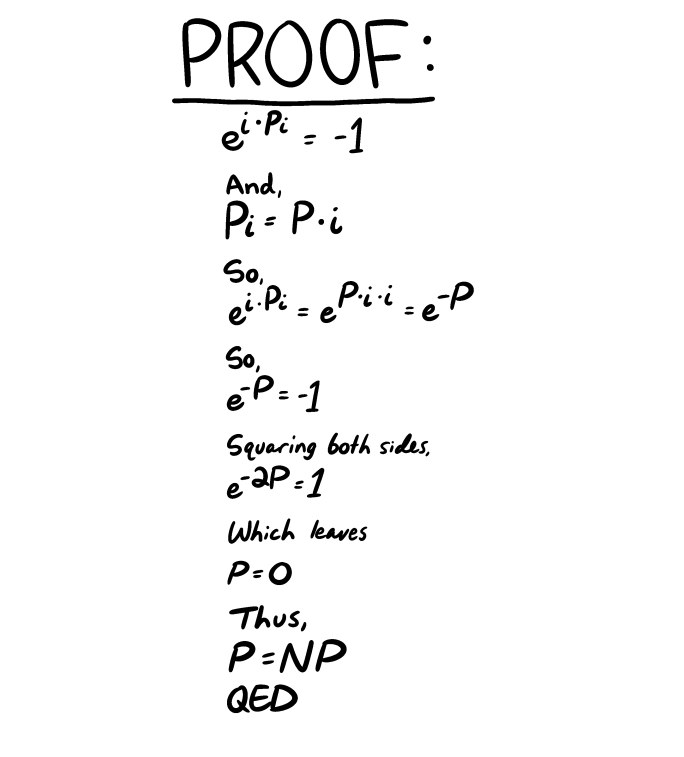 PROOF:
e^{i·Pi} = -1
And,
Pi = P·i
So,
e^{i·Pi} = e^{P·i·i} = e^{-P}
So,
e^{-P} = -1
Squaring both sides,
e^{-2P} = 1
Which leaves
P=0
Thus,
P=NP
QED